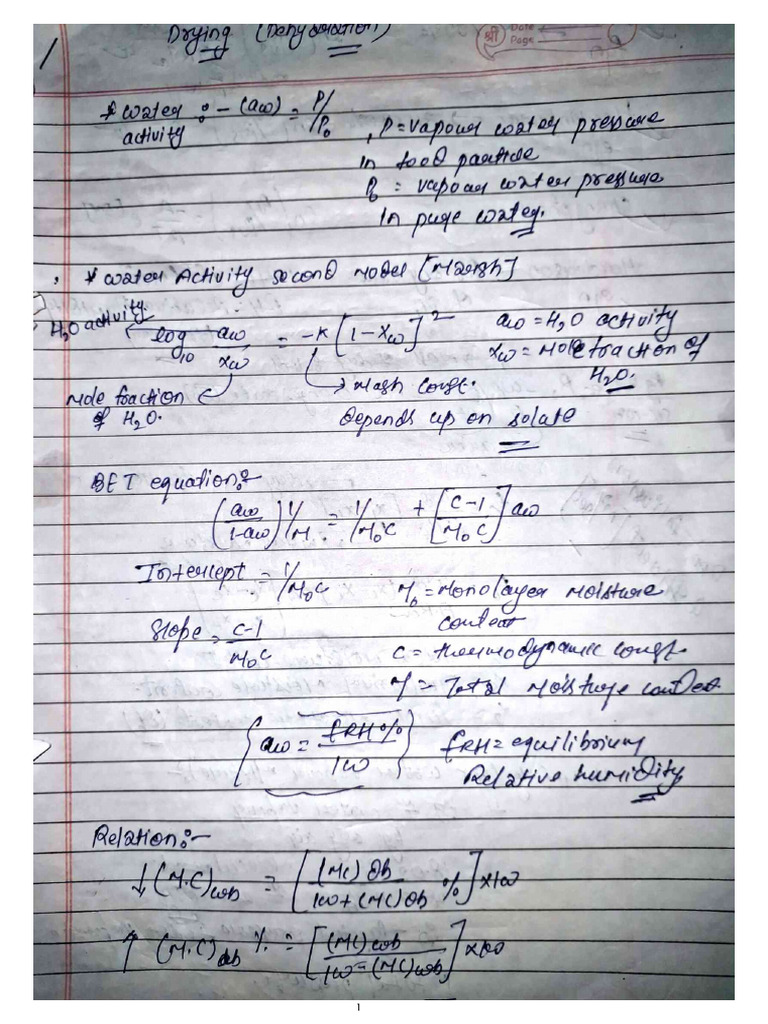 Drying (Dehydration)
Date
Page
श्री
1
* water activity :- (aw) = P/P₀
, P = vapour water pressure
in food particle
P₀ = vapour water pressure
in pure water.
* water Activity second model [Margh]
H₂O activity.
log₁₀ aw/xw = -K [1-Xw]²
aw = H₂O activity
xw = Mole fraction of
H₂O.
Mole fraction
of H₂O.
→ Magh const.
depends up on solute
BET equation:-
(aw/1-aw) 1/M = 1/M₀C + [C-1/M₀C] aw
Intercept = 1/M₀C
M₀ = Monolayer moisture
content
Slope = C-1/M₀C
C = thermodynamic const.
M = Total moisture content
{aw = ERH%/100}
ERH = equilibrium
Relative humidity
Relation:-
↓ (M.C)wb = [(MC)db/100+(MC)db %] x100
↑ (M.C)db % = [(MC)wb/100-(MC)wb] x100
1